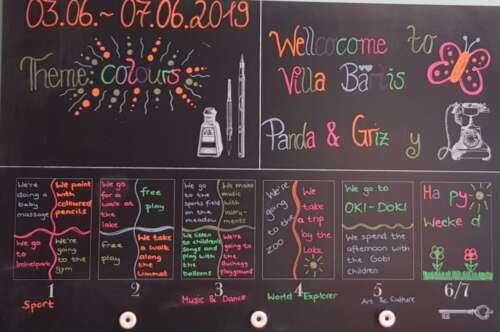 03.06.~ 07.06.2019
Theme: colours
Wellcocome to
Villa Bärlis
Panda & Grizzy
We're
doing a
baby
massage
We paint
with
coloured
pencils
We go to
We're
going
to the
gym
We go
for a
walk at
the
lake
free
play
free
play
We take
a walk
along
the
Limmat
We go
to the
sports field
on the
meadow
We make
music
with
instru-
ments
We listen
to children's
songs and
play with
the
balloons
We're
going to
the
Buchegg
playground
We're
going
to the
zoo
We
take
a trip
by the
Lake
We go to
OKI-DOKI
We spend the
afternoon with
the Gobi
children
Happy
Weekend
1
2
3
4
5
6/7
Sport
Music & Dance
World Explorer
Art & Culture